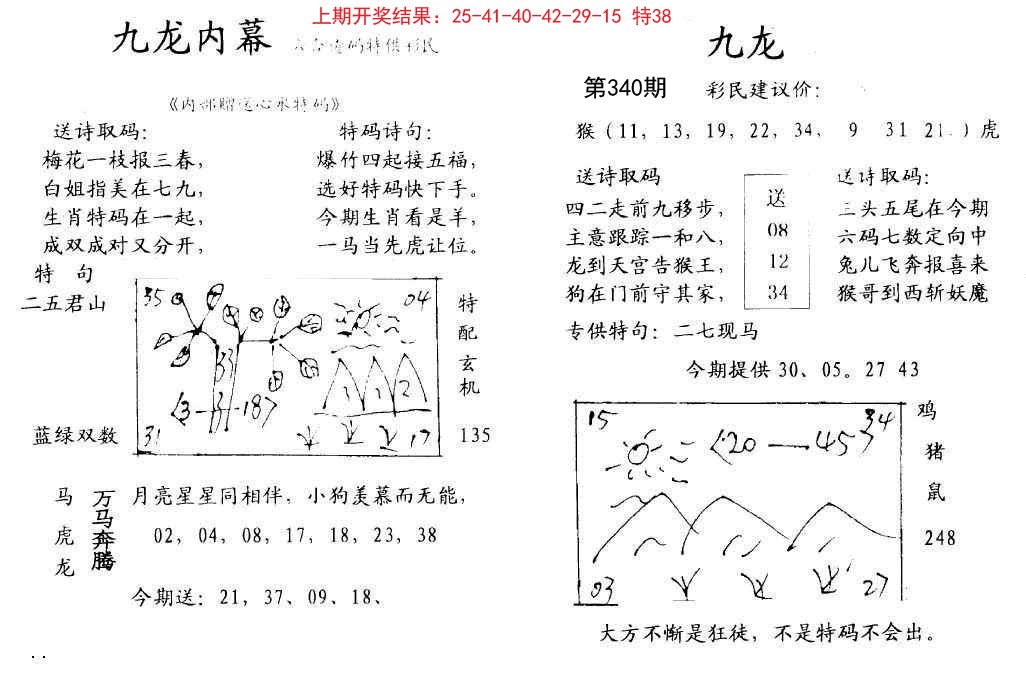 上期开奖结果：25-41-40-42-29-15 特38
九龙内幕
《内部赠送心水特码》
送诗取码：
梅花一枝报三春，
白姐指美在七九，
生肖特码在一起，
成双成对又分开，
特码诗句：
爆竹四起接五福，
选好特码快下手。
今期生肖看是羊，
一马当先虎让位。
特 句
二五君山
蓝绿双数
35
04
33
<3-3-187
1 1 2
31
17
特配玄机
135
马虎龙
万马奔腾
月亮星星同相伴，小狗羡慕而无能，
02，04，08，17，18，23，38
今期送：21，37、09、18、
九龙
第340期 彩民建议价：
猴（11，13，19，22，34、 9 31 21.）虎
送诗取码
四二走前九移步，
主意跟踪一和八，
龙到天宫告猴王，
狗在门前守其家，
送
08
12
34
送诗取码：
三头五尾在今期
六码七数定向中
兔儿飞奔报喜来
猴哥到西斩妖魔
专供特句：二七现马
今期提供 30、05。27 43
15
34
<20—45>
03
27
鸡
猪
鼠
248
大方不惭是狂徒，不是特码不会出。